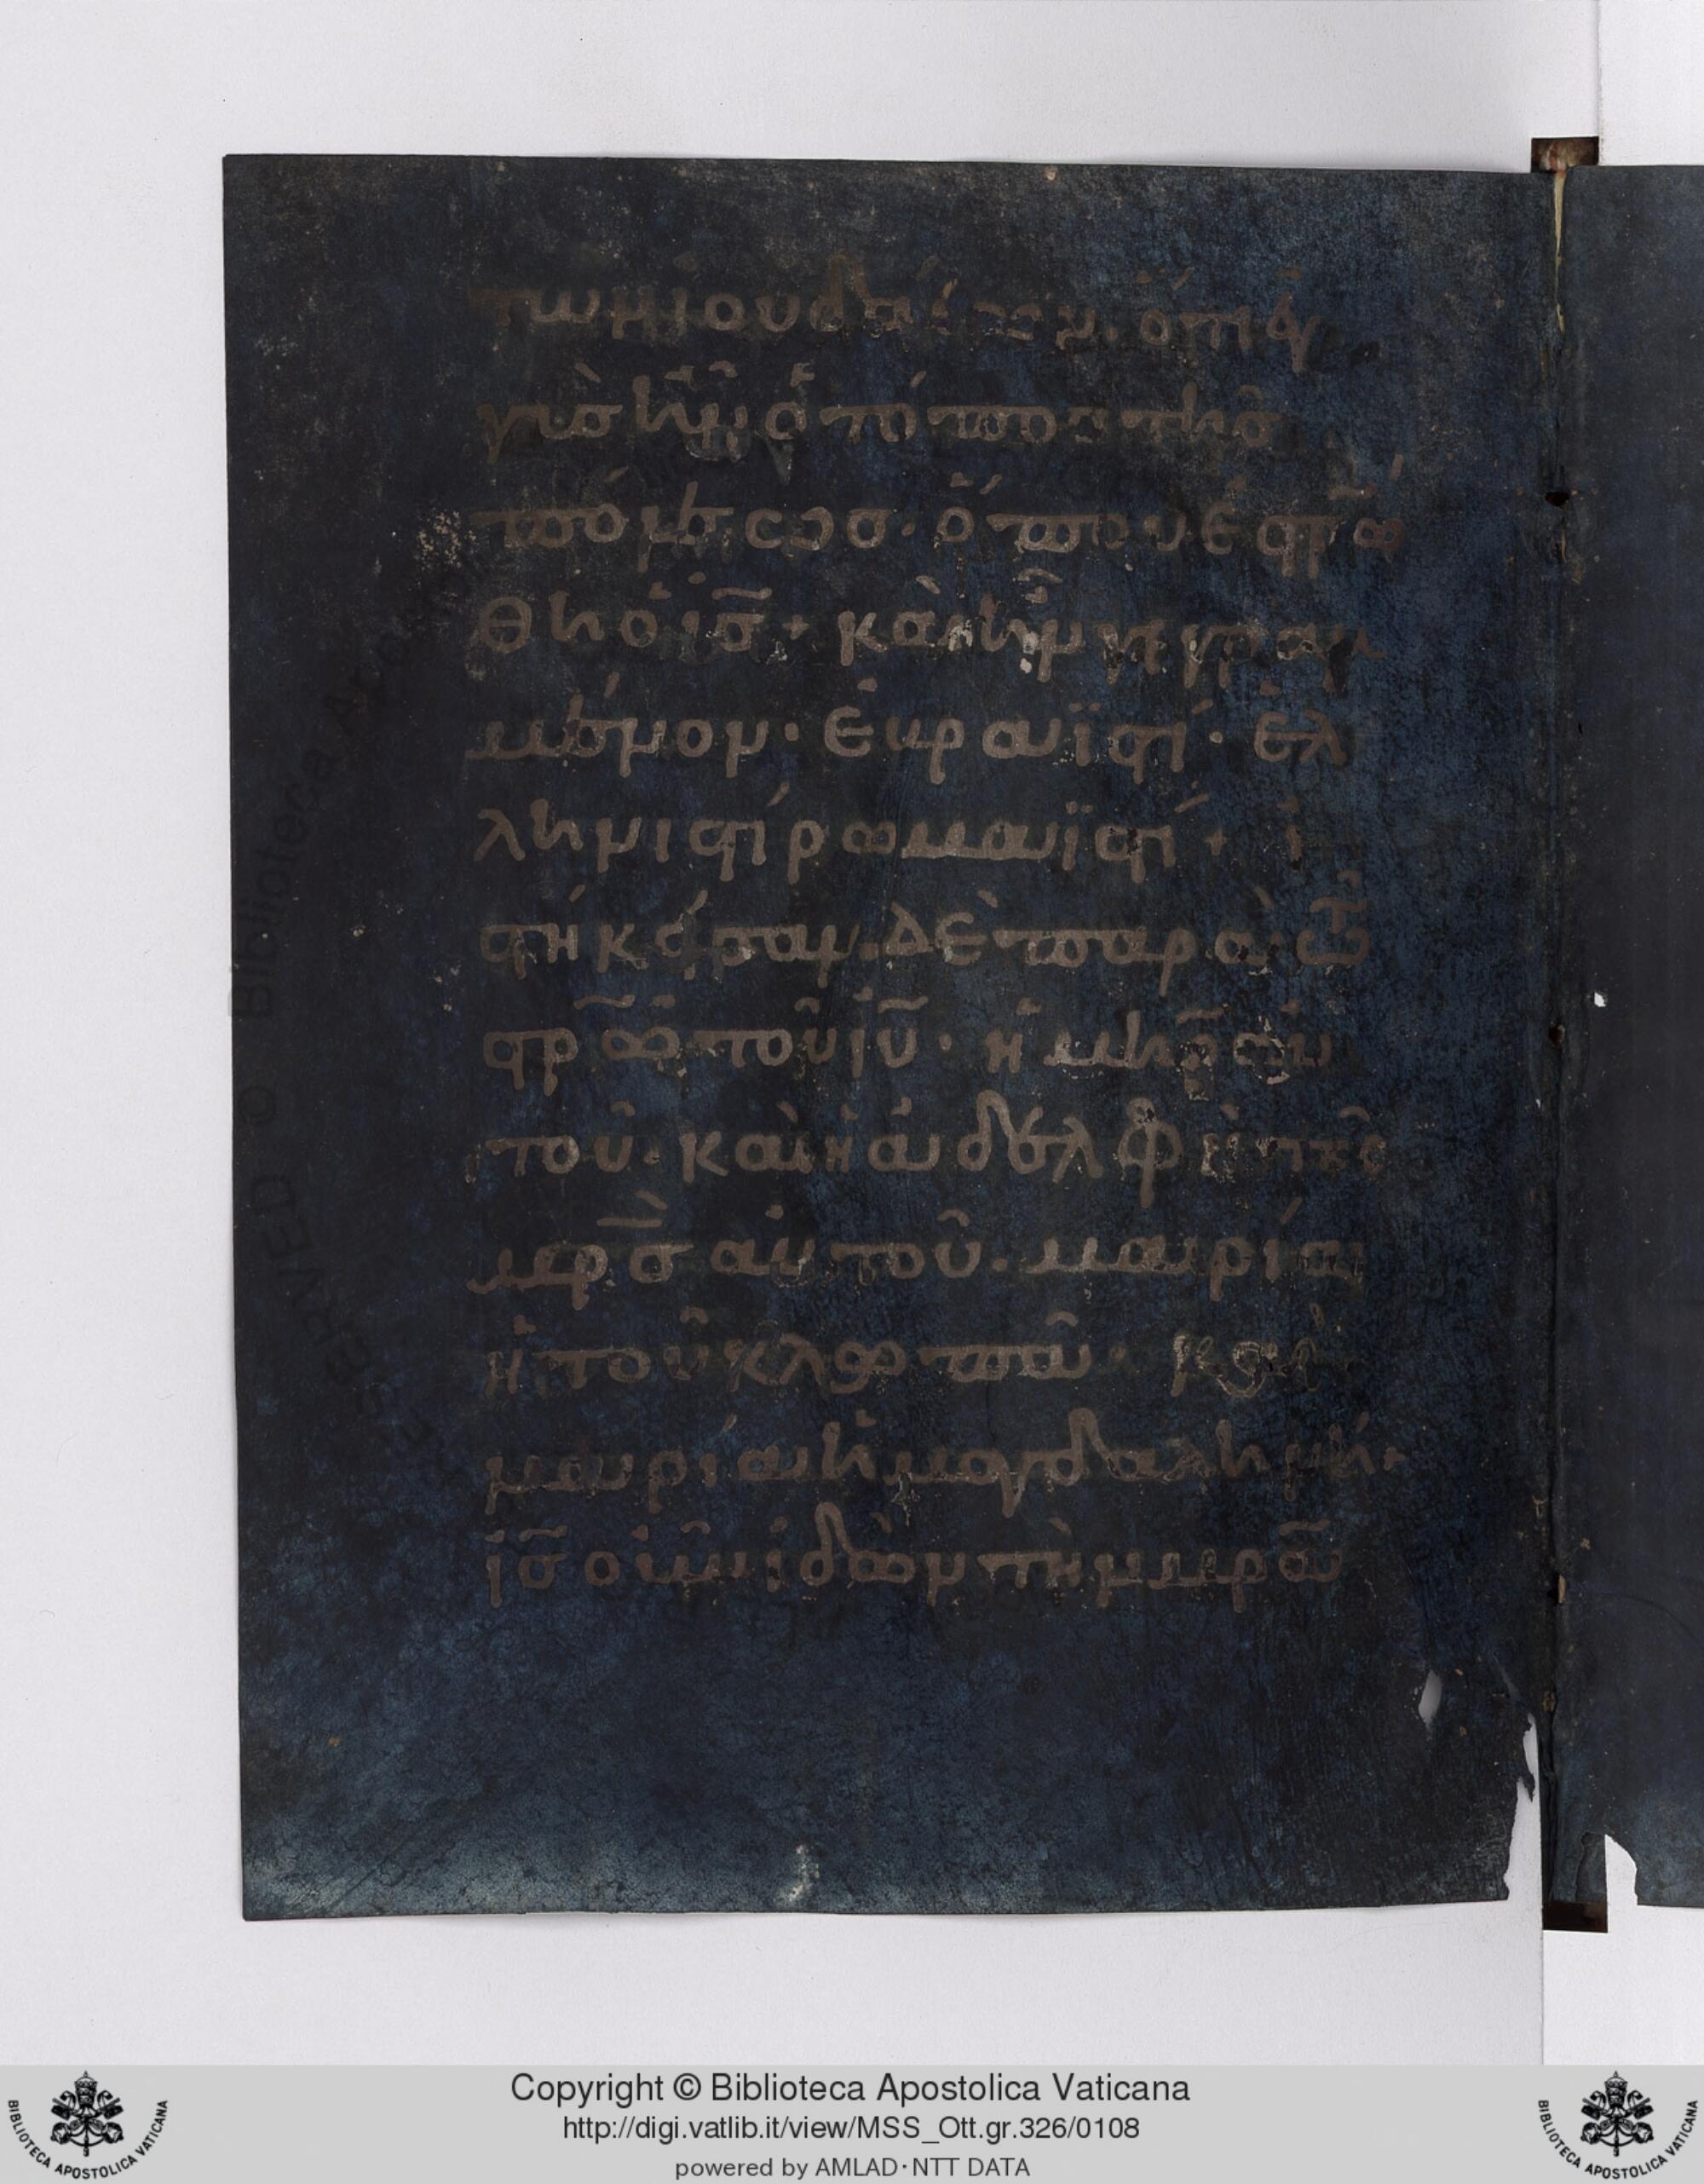 των ἰουδαίων· ὅτι ἐγ
γὺσ ἦν ὁ τόποσ τῆσ
πόλεωσ· ὅπου ἐστρω̅
θη ὁ ἰσ̅· καὶ ἦν γεγραμ
μένον· ἑβραϊστί· ἑλ
ληνιστί ῥωμαϊστί· εἱ
στήκεισαν δὲ παρὰ τῶ
στρ̅ω τοῦ ἰυ̅· ἡ μηρ̅ αὐ
τοῦ· καὶ ἡ ἀδελφὴ τῆσ
μρ̅σ αὐτοῦ· μαρία
ἡ τοῦ κλωπᾶ· καὶ
μαρία ἡ μαγδαληνή·
ἰσ̅ οὖν ἰδὼν τὴν μρα̅
Copyright © Biblioteca Apostolica Vaticana
http://digi.vatlib.it/view/MSS_Ott.gr.326/0108
powered by AMLAD·NTT DATA
BIBLIOTECA APOSTOLICA VATICANA
BIBLIOTECA APOSTOLICA VATICANA